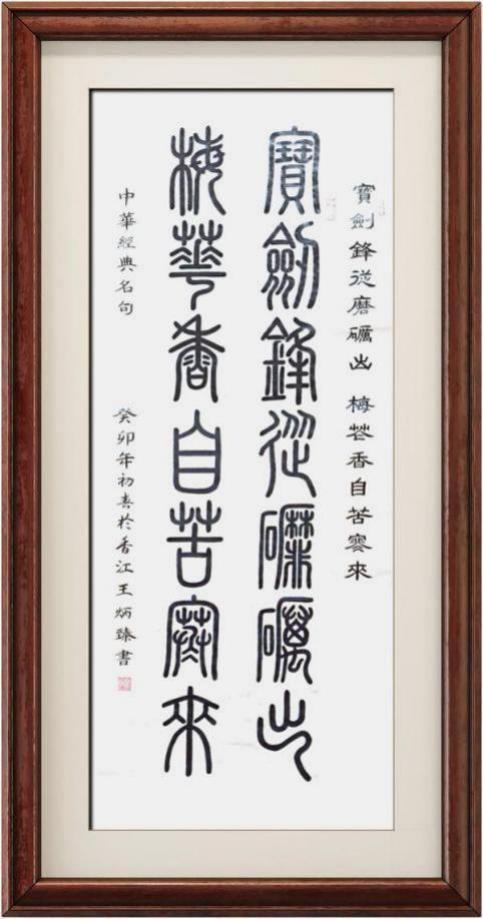 寶劍鋒從磨礪出 梅花香自苦寒來
寶劍鋒從礳礪出
梅華香自苦寒來
中華經典名句
癸卯年初春於香江王炳臻書